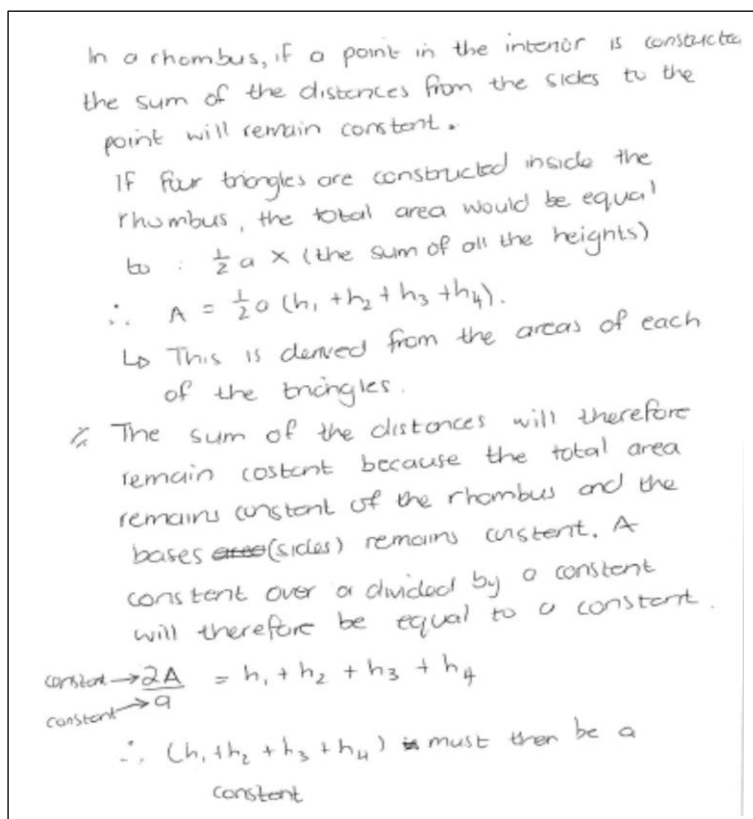 In a rhombus, if a point in the interior is constructe
the sum of the distances from the sides to the
point will remain constant.
If four triangles are constructed inside the
rhombus, the total area would be equal
to : ½ a × (the sum of all the heights)
∴ A = ½a (h₁ + h₂ + h₃ + h₄).
↳ This is derived from the areas of each
of the triangles.
∴ The sum of the distances will therefore
remain costant because the total area
remains constant of the rhombus and the
bases area (sides) remains constant. A
constant over a divided by a constant
will therefore be equal to a constant.
constant → 2A = h₁ + h₂ + h₃ + h₄
constant → a
∴ (h₁ + h₂ + h₃ + h₄) must then be a
constant